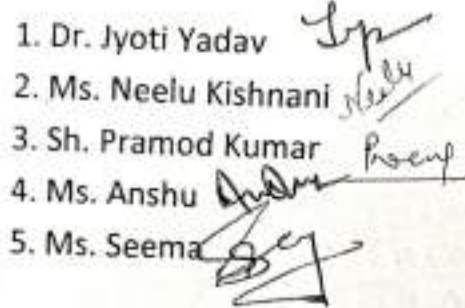 1. Dr. Jyoti Yadav
2. Ms. Neelu Kishnani Neelu
3. Sh. Pramod Kumar
4. Ms. Anshu
5. Ms. Seema